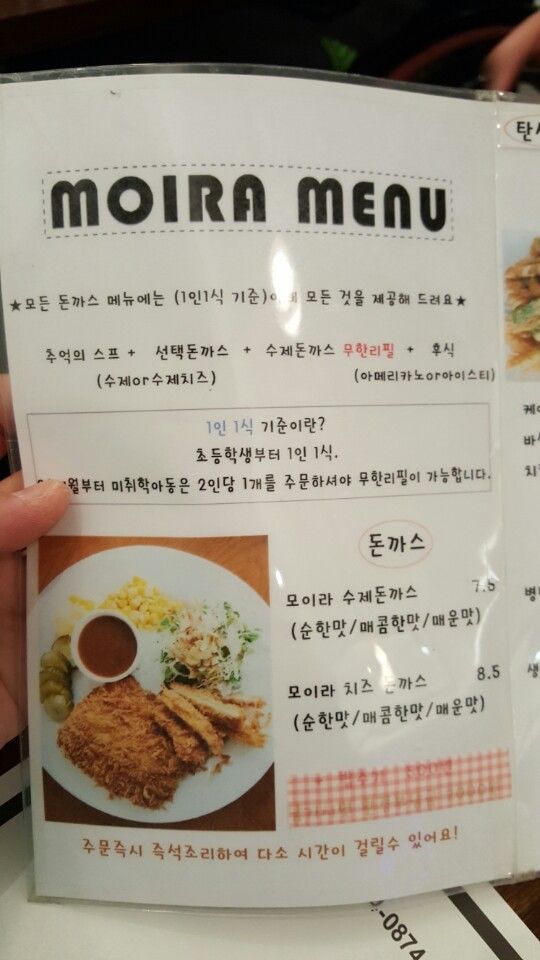 MOIRA MENU
★모든 돈까스 메뉴에는 (1인1식 기준) 모든 것을 제공해 드려요★
추억의 스프 + 선택돈까스 + 수제돈까스 무한리필 + 후식
(수제or수제치즈) (아메리카노or아이스티)
1인 1식 기준이란?
초등학생부터 1인 1식.
미취학아동은 2인당 1개를 주문하셔야 무한리필이 가능합니다.
돈까스
모이라 수제돈까스 7.5
(순한맛/매콤한맛/매운맛)
모이라 치즈 돈까스 8.5
(순한맛/매콤한맛/매운맛)
주문즉시 즉석조리하여 다소 시간이 걸릴수 있어요!
-0874